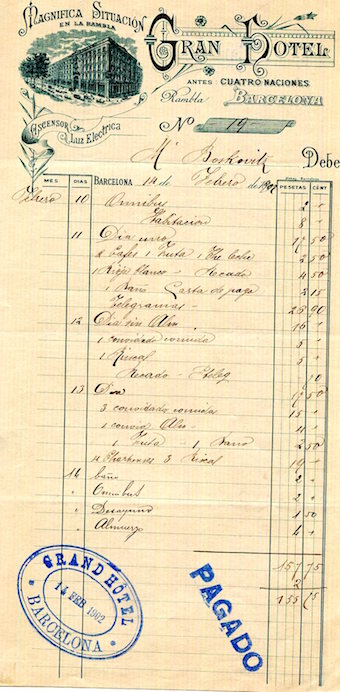 MAGNIFICA SITUACIÓN
EN LA RAMBLA
GRAN HOTEL
ANTES CUATRO NACIONES
Rambla BARCELONA
ASCENSOR
LUZ ELECTRICA
Nº 19
Mr Boskovitz Debe
MES DIAS BARCELONA 14 de Febrero de 190 PESETAS CÉNT
Febrero 10 Omnibus 2 "
Habitacion 8 "
11 Dia uno 17 50
2 Cafes 1 Fruta 1 2 50
1 Rioja blanco - Recado 4 50
1 Baño Carta de pago 2 15
Telegramas - 90
12 Dia sin Alm 16 "
1 convidado comida 5 "
1 Riscal 5 "
Recado - 10
13 Dia 17 50
3 convidado comida 15 "
1 convid Alm - 4 "
1 Fruta - 1 Baño 2 50
3 Riscal 19 "
14 baño 2 "
" Omnibus 2 "
" Desayuno 1 50
" Almuerzo 4 "
157 75
2
155 75
GRAND HOTEL
14 FEB 1902
BARCELONA
PAGADO